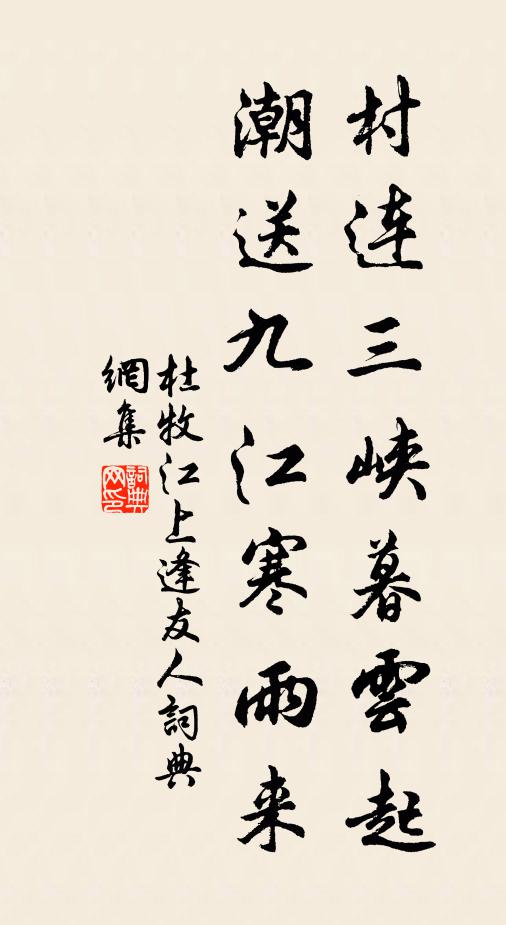 村連三峽暮雲起
潮送九江寒雨来
杜牧江上逢友人詞典
網集
詞典
网印